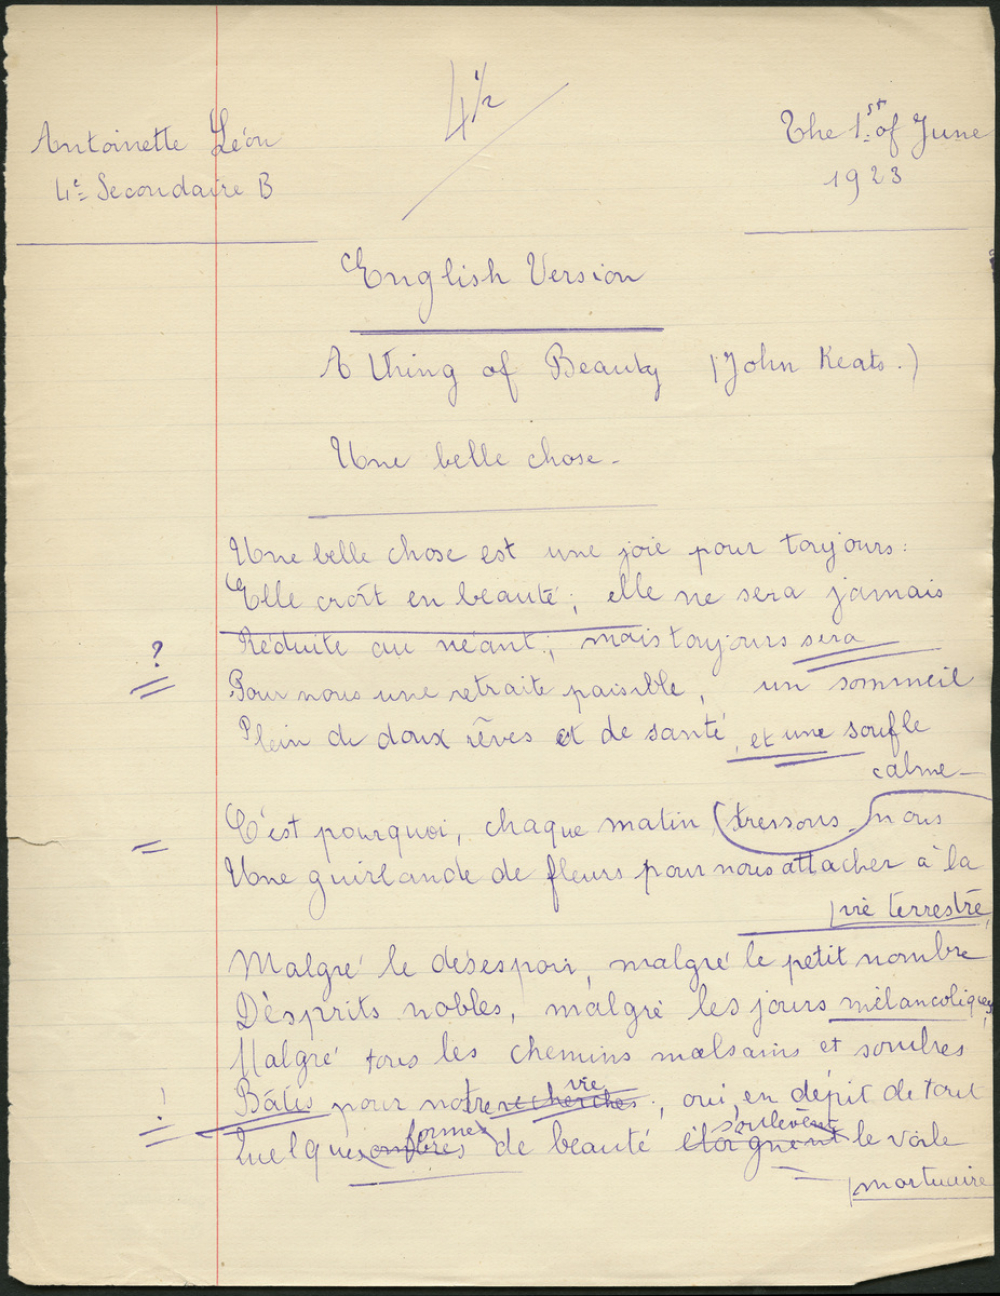 4 1/2
Antoinette Léon
4e Secondaire B
The 1st of June
1923
English Version
A thing of Beauty (John Keats.)
Une belle chose.
Une belle chose est une joie pour toujours:
Elle croît en beauté; elle ne sera jamais
Réduite au néant; mais toujours sera
?
Pour nous une retraite paisible, un sommeil
Plein de doux rêves et de santé, et une soufle
calme
C'est pourquoi, chaque matin (tressons-nous
Une guirlande de fleurs pour nous attacher à la
vie terrestre,
Malgré le désespoir, malgré le petit nombre
D'ésprits nobles, malgré les jours mélancoliques,
Malgré tous les chemins malsains et sombres
vie
!
Bâtis pour notre recherches;, oui, en dépit de tout
formes soulèvent
Quelques ombres de beauté éloignent le voile
mortuaire